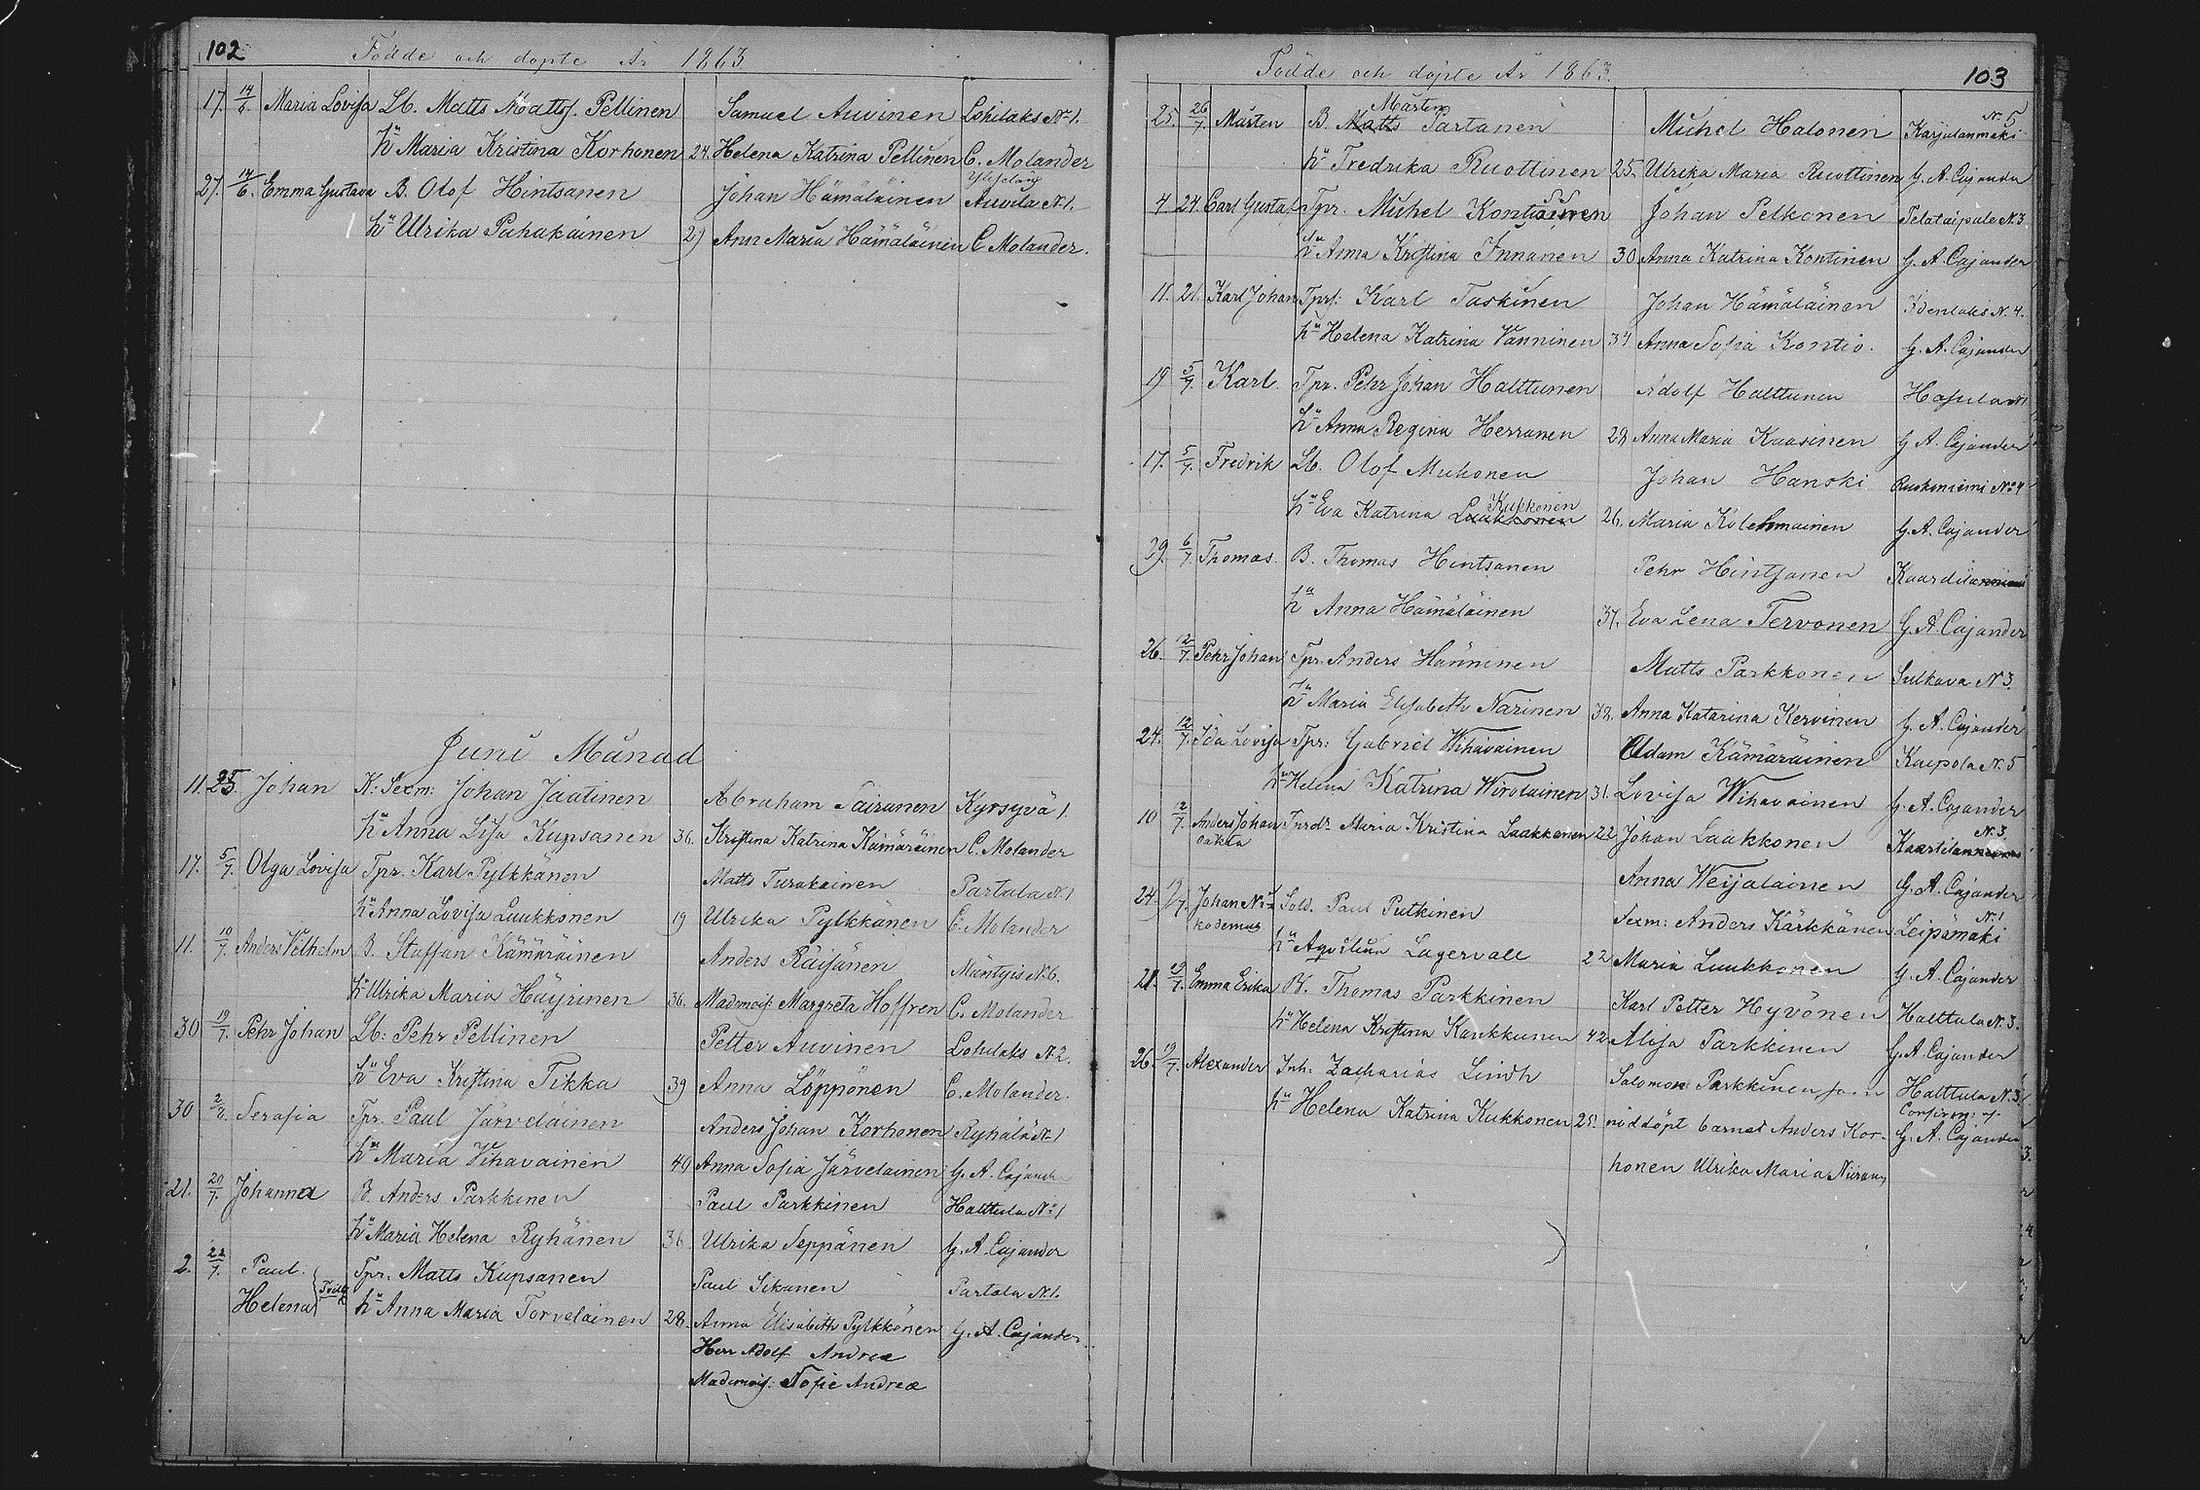 102
Födde och döpte År 1863
17. 14/6 Maria Lovisa Lb. Matts Mattss. Pellinen Samuel Auvinen Lohilaks No 1.
hu Maria Kristina Korhonen 24. Helena Katrina Pellinen C. Molander
27. 14/6. Emma Gustava B. Olof Hintsanen Johan Hämäläinen Auvila N 1.
hu Ulrika Puhakainen 29 Anna Maria Hämäläinen C Molander.
Juni Månad
11. 25. Johan K: Sexm: Johan Jaatinen Abraham Sairanen Kyrsyvä 1.
hu Anna Lisa Kupsanen 36. Kristina Katrina Kämäräinen C. Molander
17. 5/7. Olga Lovisa Tpr. Karl Pylkkänen Matts Turakainen Partala N. 1
hu Anna Lovisa Luukkonen 19 Ulrika Pylkkänen C. Molander
11. 10/7. Anders Vilhelm B. Staffan Kämäräinen Anders Räisänen Mäntyis N. 6.
hu Ulrika Maria Häyrinen 36. Mademois: Margreta Hoffren C. Molander
30 19/7. Pehr Johan Lb: Pehr Pellinen Petter Auvinen Lohilaks N 2.
hu Eva Kristina Tikka 39 Anna Löppönen C. Molander.
30 2/8. Serafia Tpr. Paul Järveläinen Anders Johan Korhonen Ryhälä N 1
hu Maria Vihavainen 40 Anna Sofia Järveläinen G. A. Cajander
21. 20/7. Johanna B. Anders Parkkinen Paul Parkkinen Halttula No 1
hu Maria Helena Ryhänen 36. Ulrika Seppänen G. A. Cajander
2. 22/7. Paul. Tpr. Matts Kupsanen Pauli Sikanen Partala N. 1.
Helena hu Anna Maria Torvelainen 28. Anna Elisabeth Pylkkänen G. A. Cajander.
Herr Adolf Andreæ
Mademois: Sofie Andreæ
Födde och döpte År 1863.
103
25. 26/7. Mårten B. Matts Mårten Partanen Michel Halonen Karjalanmäki N. 5
hu Fredrika Ruottinen 25. Ulrika Maria Ruottinen G. A. Cajander
4 24. Carl Gustaf Tpr. Michel Kontinen Johan Pelkonen Telataipale N. 3.
hu Anna Kristina Innanen 30 Anna Katrina Kontinen G. A. Cajander
11. 21. Karl Johan Tprf: Karl Taskinen Johan Hämäläinen Idenlaks N. 4.
hu Helena Katrina Vanninen 34 Anna Sofia Kontio. G. A. Cajander
19 5/7 Karl Tpr. Pehr Johan Halttunen Adolf Halttunen Hasula N 1
hu Anna Regina Herranen 29 Anna Maria Kaasinen G A. Cajander
17. 5/7. Fredrik Lb. Olof Muhonen Johan Hanski Ruskoniemi No 4
hu Eva Katrina Laakkonen Kukkonen 26. Maria Kolehmainen G. A. Cajander
29. 6/7. Thomas. B. Thomas Hintsanen Pehr Hintsanen Kaartilanniemi
hu Anna Hämäläinen 37. Eva Lena Tervonen G. A. Cajander
26. 2/7. Pehr Johan Tpr. Anders Hänninen Matts Parkkonen Sulkava N 3.
hu Maria Elisabeth Narinen 32. Anna Katarina Kervinen G. A. Cajander
24. 12/7. Ida Lovisa Tpr: Gabriel Wihavainen Adam Kämäräinen Kaipola N. 5
hu Helena Katrina Wirolainen 31. Lovisa Wihavainen G. A. Cajander
10 2/7. Anders Johan oäkta Tprdr Maria Kristina Laakkonen 22 Johan Laakkonen Kaartilanniemi N. 3.
Anna Weijalainen G. A. Cajander
24. 19/7. Johan Nikodemus Sold. Paul Putkinen Sexm: Anders Kärkkänen Leipämäki N. 1
hu Agustina Lagervall 22 Maria Luukkonen G. A. Cajander
28. 19/7. Emma Erika B. Thomas Parkkinen Karl Petter Hyvönen Halttula N. 3.
hu Helena Kristina Kaukkunen 42 Alisa Parkkinen G. A Cajander
26. 19/7. Alexander Inh. Zacharias Lindh Salomon Parkkinen som Halttula N. 3.
Confirm: af
hu Helena Katrina Kukkonen 25. nöddöpt barnet Anders Kor- G. A. Cajander
honen Ulrika Maria